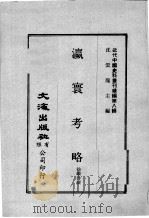 近代中國史料叢刊續編第八輯
沈雲龍主編
瀛寰考略
文海出版社有限公司印行